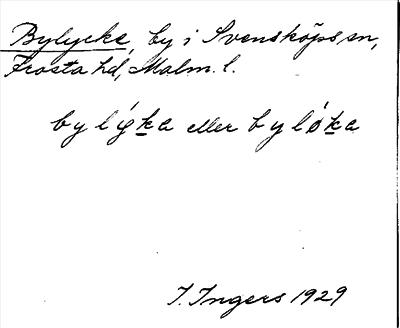 Bylycke, by i Svensköps sn,
Frosta hd, Malm. l.
by lý̱ka eller by lǿka
I. Ingers 1929